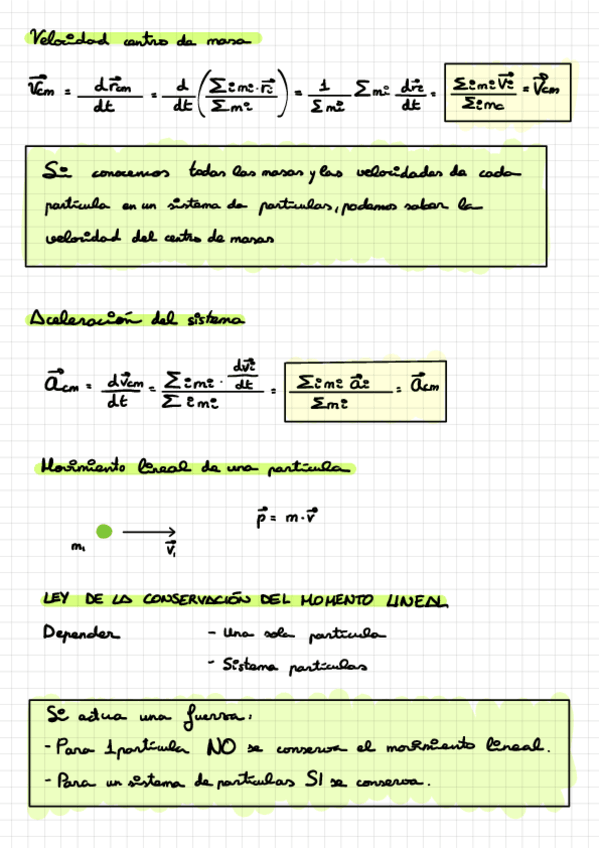 Velocidad centro de masa
\vec{V}_{cm} = \frac{d\vec{r}_{cm}}{dt} = \frac{d}{dt}\left(\frac{\sum_i m_i \cdot \vec{r}_i}{\sum m_i}\right) = \frac{1}{\sum m_i} \sum m_i \frac{d\vec{r}_i}{dt} = \frac{\sum_i m_i \vec{V}_i}{\sum_i m_c} = \vec{V}_{cm}
Si conocemos todas las masas y las velocidades de cada
partícula en un sistema de partículas, podemos saber la
velocidad del centro de masas
Aceleración del sistema
\vec{a}_{cm} = \frac{d\vec{v}_{cm}}{dt} = \frac{\sum_i m_i \cdot \frac{d\vec{v}_i}{dt}}{\sum_i m_i} = \frac{\sum_i m_i \vec{a}_i}{\sum m_i} = \vec{a}_{cm}
Movimiento lineal de una partícula
\vec{p} = m \cdot \vec{v}
m_1 \vec{v}_1
LEY DE LA CONSERVACIÓN DEL MOMENTO LINEAL
Depender - Una sola partícula
- Sistema partículas
Si actua una fuerza:
- Para 1 partícula NO se conserva el movimiento lineal.
- Para un sistema de partículas SI se conserva.